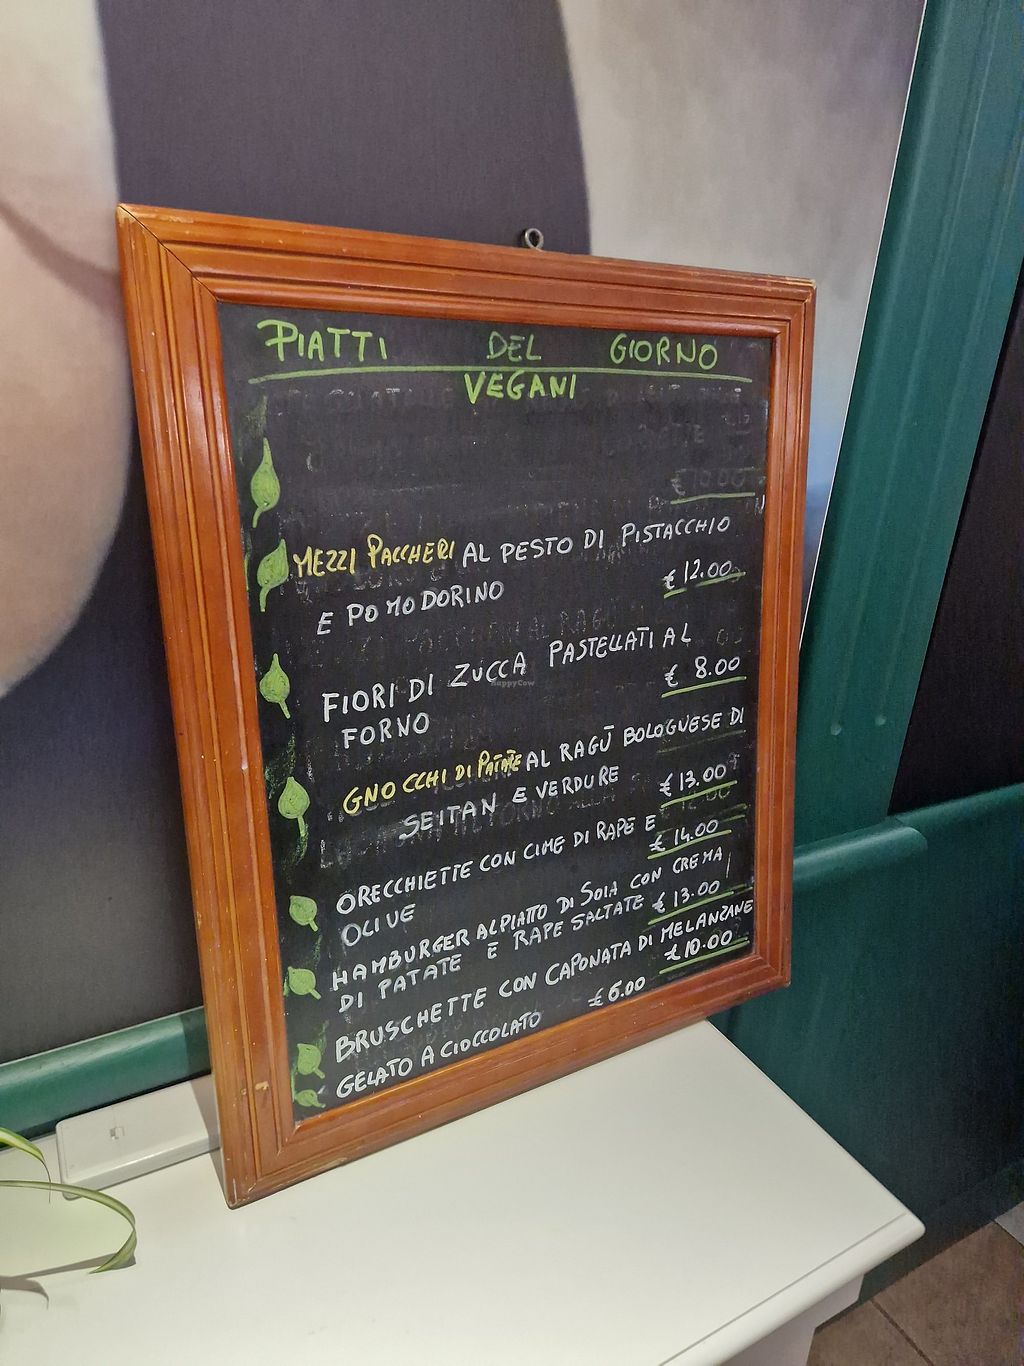 PIATTI DEL GIORNO
VEGANI
€ 10.00
MEZZI PACCHERI AL PESTO DI PISTACCHIO
E POMODORINO € 12.00
FIORI DI ZUCCA PASTELLATI AL
FORNO € 8.00
GNOCCHI DI PATATE AL RAGÙ BOLOGNESE DI
SEITAN E VERDURE € 13.00
ORECCHIETTE CON CIME DI RAPE E
OLIVE € 14.00
HAMBURGER AL PIATTO DI SOIA CON CREMA
DI PATATE E RAPE SALTATE € 13.00
BRUSCHETTE CON CAPONATA DI MELANZANE
€ 10.00
GELATO A CIOCCOLATO € 6.00
HappyCow